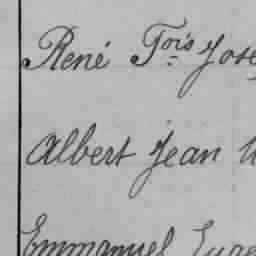 René Fois Jose
Albert Jean
Emmanuel Euge